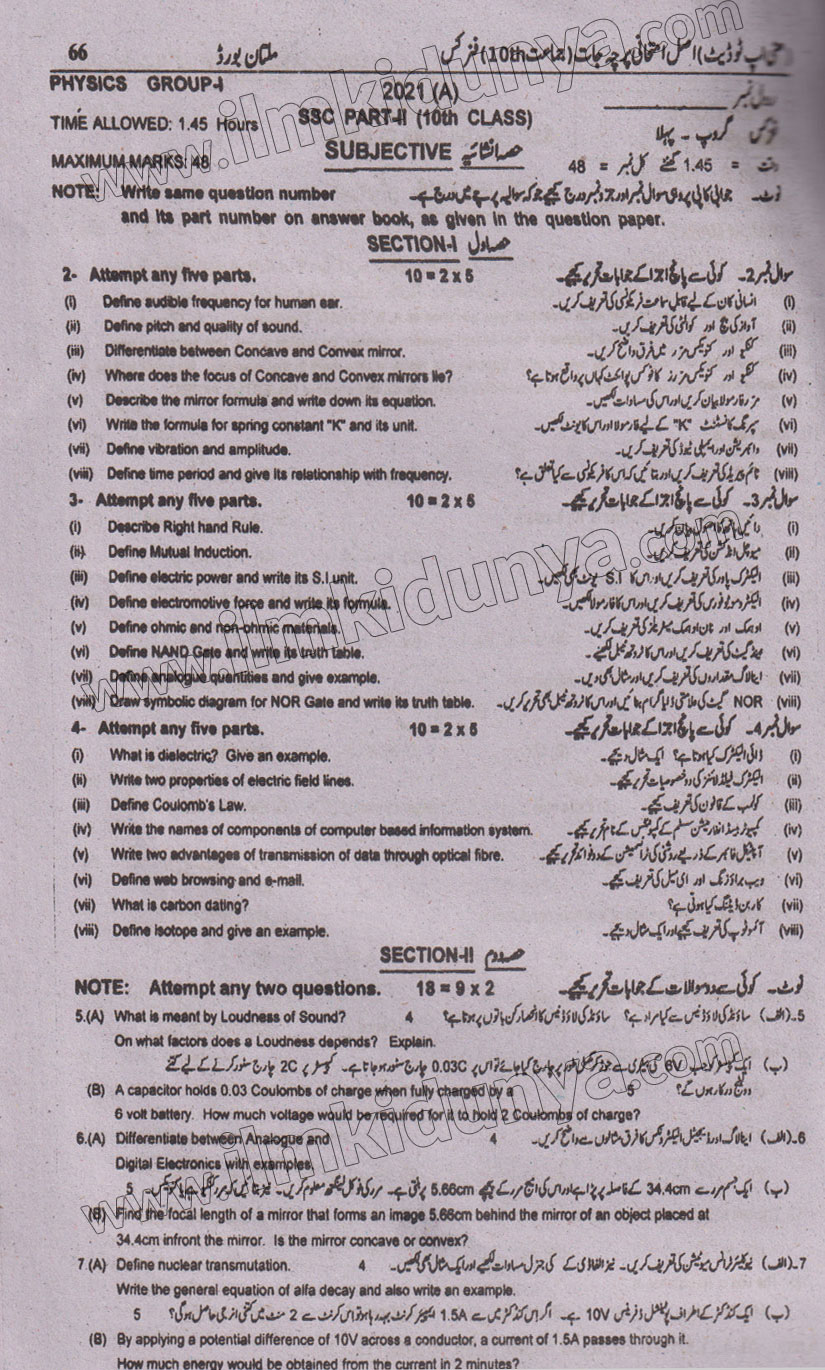 66 ملتان بورڈ (اپ ٹو ڈیٹ) اصل امتحانی پرچہ جات (جماعت 10th) فزکس
PHYSICS GROUP-I 2021 (A) رول نمبر
TIME ALLOWED: 1.45 Hours SSC PART-II (10th CLASS) فزکس گروپ - پہلا
MAXIMUM MARKS: 48 SUBJECTIVE حصہ انشائیہ وقت = 1.45 گھنٹے کل نمبر = 48
NOTE: Write same question number نوٹ۔ جوابی کاپی پر وہی سوال نمبر اور جزو نمبر درج کیجیے جو کہ سوالیہ پرچے میں درج ہے۔
and its part number on answer book, as given in the question paper.
SECTION-I حصہ اول
2- Attempt any five parts. 10 = 2 x 5 سوال نمبر 2۔ کوئی سے پانچ اجزا کے جوابات تحریر کیجیے۔
(i) Define audible frequency for human ear. انسانی کان کے لیے قابلِ سماعت فریکوئنسی کی تعریف کریں۔ (i)
(ii) Define pitch and quality of sound. آواز کی پچ اور کوالٹی کی تعریف کریں۔ (ii)
(iii) Differentiate between Concave and Convex mirror. کنکیو اور کنویکس مرر میں فرق واضح کریں۔ (iii)
(iv) Where does the focus of Concave and Convex mirrors lie? کنکیو اور کنویکس مررز کا فوکس پوائنٹ کہاں پر واقع ہوتا ہے؟ (iv)
(v) Describe the mirror formula and write down its equation. مرر فارمولا بیان کریں اور اس کی مساوات لکھیں۔ (v)
(vi) Write the formula for spring constant "K" and its unit. سپرنگ کانسٹنٹ "K" کے لیے فارمولا اور اس کا یونٹ لکھیں۔ (vi)
(vii) Define vibration and amplitude. وائبریشن اور ایمپلی ٹیوڈ کی تعریف کریں۔ (vii)
(viii) Define time period and give its relationship with frequency. ٹائم پیریڈ کی تعریف کریں اور بتائیں کہ اس کا فریکوئنسی سے کیا تعلق ہے؟ (viii)
3- Attempt any five parts. 10 = 2 x 5 سوال نمبر 3۔ کوئی سے پانچ اجزا کے جوابات تحریر کیجیے۔
(i) Describe Right hand Rule. دائیں ہاتھ کا اصول بیان کریں۔ (i)
(ii) Define Mutual Induction. میوچل انڈکشن کی تعریف کریں۔ (ii)
(iii) Define electric power and write its S.I. unit. الیکٹرک پاور کی تعریف کریں اور اس کا S.I یونٹ بھی لکھیں۔ (iii)
(iv) Define electromotive force and write its formula. الیکٹروموٹو فورس کی تعریف کریں اور اس کا فارمولا لکھیں۔ (iv)
(v) Define ohmic and non-ohmic materials. اوہمک اور نان اوہمک میٹریلز کی تعریف کریں۔ (v)
(vi) Define NAND Gate and write its truth table. نینڈ گیٹ کی تعریف کریں اور اس کا ٹروتھ ٹیبل لکھیے۔ (vi)
(vii) Define analogue quantities and give example. اینالاگ مقداروں کی تعریف کریں اور مثال بھی دیں۔ (vii)
(viii) Draw symbolic diagram for NOR Gate and write its truth table. NOR گیٹ کی علامتی ڈایاگرام بنائیں اور اس کا ٹروتھ ٹیبل بھی تحریر کریں۔ (viii)
4- Attempt any five parts. 10 = 2 x 5 سوال نمبر 4۔ کوئی سے پانچ اجزا کے جوابات تحریر کیجیے۔
(i) What is dielectric? Give an example. ڈائی الیکٹرک کیا ہوتا ہے؟ ایک مثال دیجیے۔ (i)
(ii) Write two properties of electric field lines. الیکٹرک فیلڈ لائنز کی دو خصوصیات تحریر کیجیے۔ (ii)
(iii) Define Coulomb's Law. کولمب کے قانون کی تعریف کیجیے۔ (iii)
(iv) Write the names of components of computer based information system. کمپیوٹر بیسڈ انفارمیشن سسٹم کے کمپونینٹس کے نام تحریر کیجیے۔ (iv)
(v) Write two advantages of transmission of data through optical fibre. آپٹیکل فائبر کے ذریعے روشنی کی ٹرانسمیشن کے دو فوائد تحریر کیجیے۔ (v)
(vi) Define web browsing and e-mail. ویب براؤزنگ اور ای میل کی تعریف کیجیے۔ (vi)
(vii) What is carbon dating? کاربن ڈیٹنگ کیا ہوتی ہے؟ (vii)
(viii) Define isotope and give an example. آئسوٹوپ کی تعریف کیجیے اور ایک مثال دیجیے۔ (viii)
SECTION-II حصہ دوم
NOTE: Attempt any two questions. 18 = 9 x 2 نوٹ۔ کوئی سے دو سوالات کے جوابات تحریر کیجیے۔
5.(A) What is meant by Loudness of Sound? 4 5۔(الف) ساؤنڈ کی لاؤڈنیس سے کیا مراد ہے؟ ساؤنڈ کی لاؤڈنیس کا انحصار کن باتوں پر ہوتا ہے؟
On what factors does a Loudness depends? Explain.
(ب) ایک کپیسٹر کو جب 6V کی بیٹری سے چارج کیا جائے تو اس پر 0.03C چارج سٹور ہو جاتا ہے۔ کپیسٹر پر 2C چارج سٹور کرنے کے لیے کتنے
(B) A capacitor holds 0.03 Coulombs of charge when fully charged by a 5 وولٹیج درکار ہوں گے؟
6 volt battery. How much voltage would be required for it to hold 2 Coulombs of charge?
6.(A) Differentiate between Analogue and 4 6۔(الف) اینالاگ اور ڈیجیٹل الیکٹرونکس کا فرق مثالوں سے واضح کریں۔
Digital Electronics with examples.
(ب) ایک جسم مرر سے 34.4cm کے فاصلہ پر پڑا ہے اور اس کی امیج مرر کے پیچھے 5.66cm پر بنتی ہے۔ مرر کی فوکل لینگتھ معلوم کریں۔ نیز بتائیں کہ مرر کنکیو ہے یا کنویکس۔ 5
(B) Find the focal length of a mirror that forms an image 5.66cm behind the mirror of an object placed at
34.4cm infront the mirror. Is the mirror concave or convex?
7.(A) Define nuclear transmutation. 4 7۔(الف) نیوکلیئر ٹرانس میوٹیشن کی تعریف کریں۔ نیز الفا ڈی کے کی جنرل مساوات لکھیے اور ایک مثال بھی لکھیں۔
Write the general equation of alfa decay and also write an example.
(ب) ایک کنڈکٹر کے اطراف پوٹینشل ڈفرینس 10V ہے۔ اگر اس کنڈکٹر میں سے 1.5A ایمپیئر کرنٹ بہہ رہا ہو تو اس کرنٹ سے 2 منٹ میں کتنی انرجی حاصل ہوگی؟ 5
(B) By applying a potential difference of 10V across a conductor, a current of 1.5A passes through it.
How much energy would be obtained from the current in 2 minutes?
www.ilmkidunya.com
www.ilmkidunya.com
www.ilmkidunya.com